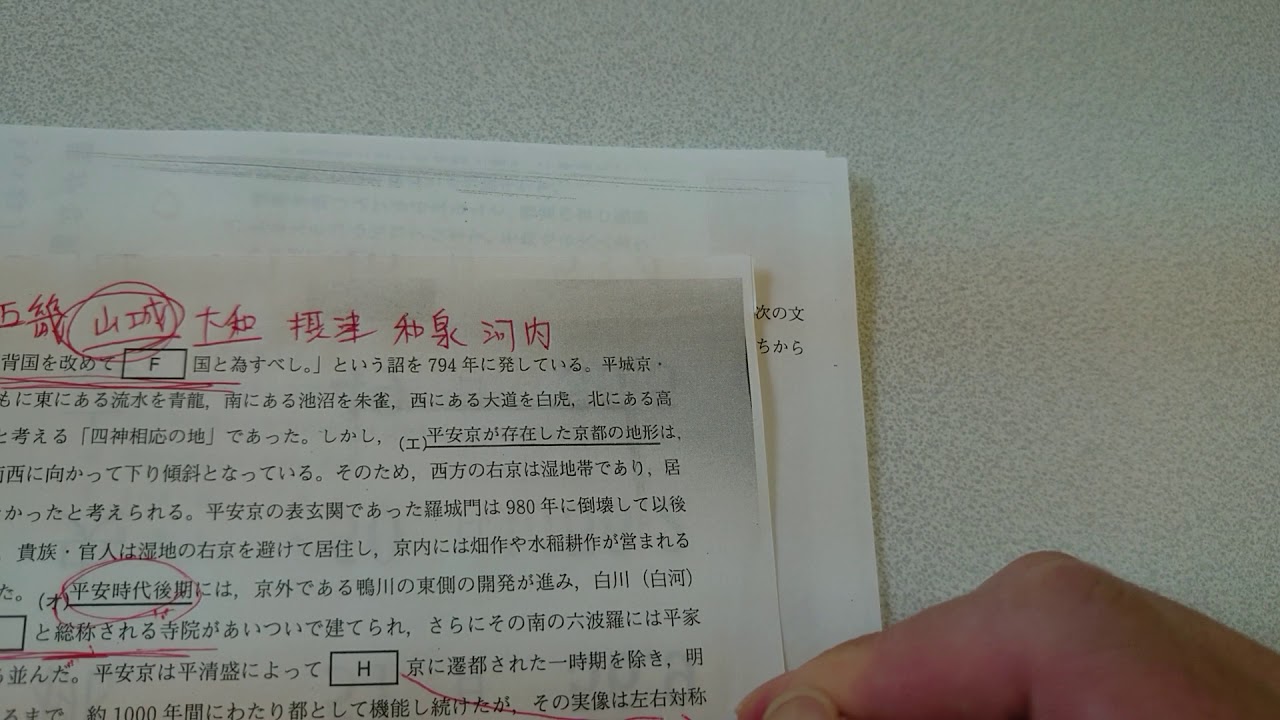 五畿 山城 大和 摂津 和泉 河内
次の文
ちから
背国を改めて F 国と為すべし。」という詔を 794 年に発している。平城京・
もに東にある流水を青龍，南にある池沼を朱雀，西にある大道を白虎，北にある高
と考える「四神相応の地」であった。しかし，(エ)平安京が存在した京都の地形は，
西に向かって下り傾斜となっている。そのため，西方の右京は湿地帯であり，居
かったと考えられる。平安京の表玄関であった羅城門は 980 年に倒壊して以後
貴族・官人は湿地の右京を避けて居住し，京内には畑作や水稲耕作が営まれる
た。(オ)平安時代後期には，京外である鴨川の東側の開発が進み，白川（白河）
と総称される寺院があいついで建てられ，さらにその南の六波羅には平家
並んだ。平安京は平清盛によって H 京に遷都された一時期を除き，明
るまで，約 1000 年間にわたり都として機能し続けたが，その実像は左右対称